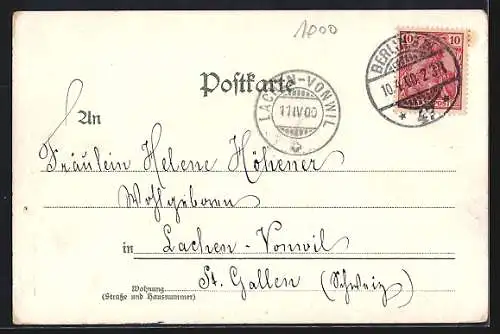 1000
10 10
BERLIN
10.4.00.2-3N.
Postkarte
LACHEN-VONWIL
11 IV 00
An
Fräulein Helene Höhener
Wohlgeboren
in Lachen-Vonwil
St. Gallen (Schweiz)
Wohnung
(Straße und Hausnummer)